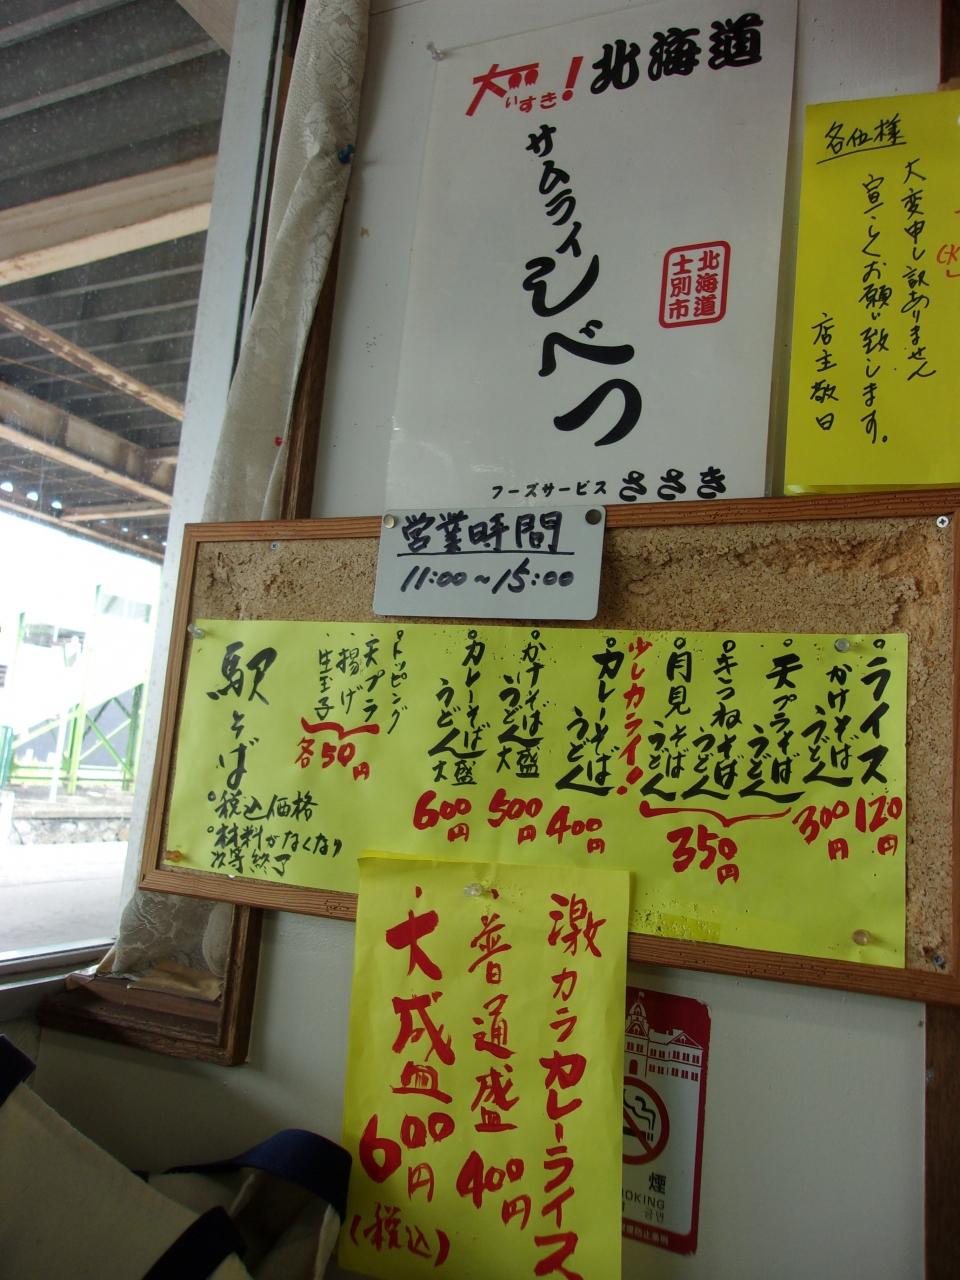 大いすき！北海道
サムライしべつ
北海道
士別市
フーズサービス ささき
各位様
大変申し訳ありません
宜しくお願い致します。
店主敬白
営業時間
11:00～15:00
ライス 120円
かけそば うどん 300円
天プラそば うどん
きつねそば うどん
月見そば うどん
350円
少しカライ！
カレーそば うどん 400円
かけそば うどん 大盛 500円
カレーそば うどん 大盛 600円
トッピング
天プラ
揚げ
生玉子
各50円
駅そば
税込価格
材料がなくなり
次第終了
激カラカレーライス
普通盛 400円
大盛 600円
(税込)
煙
OKING
금연